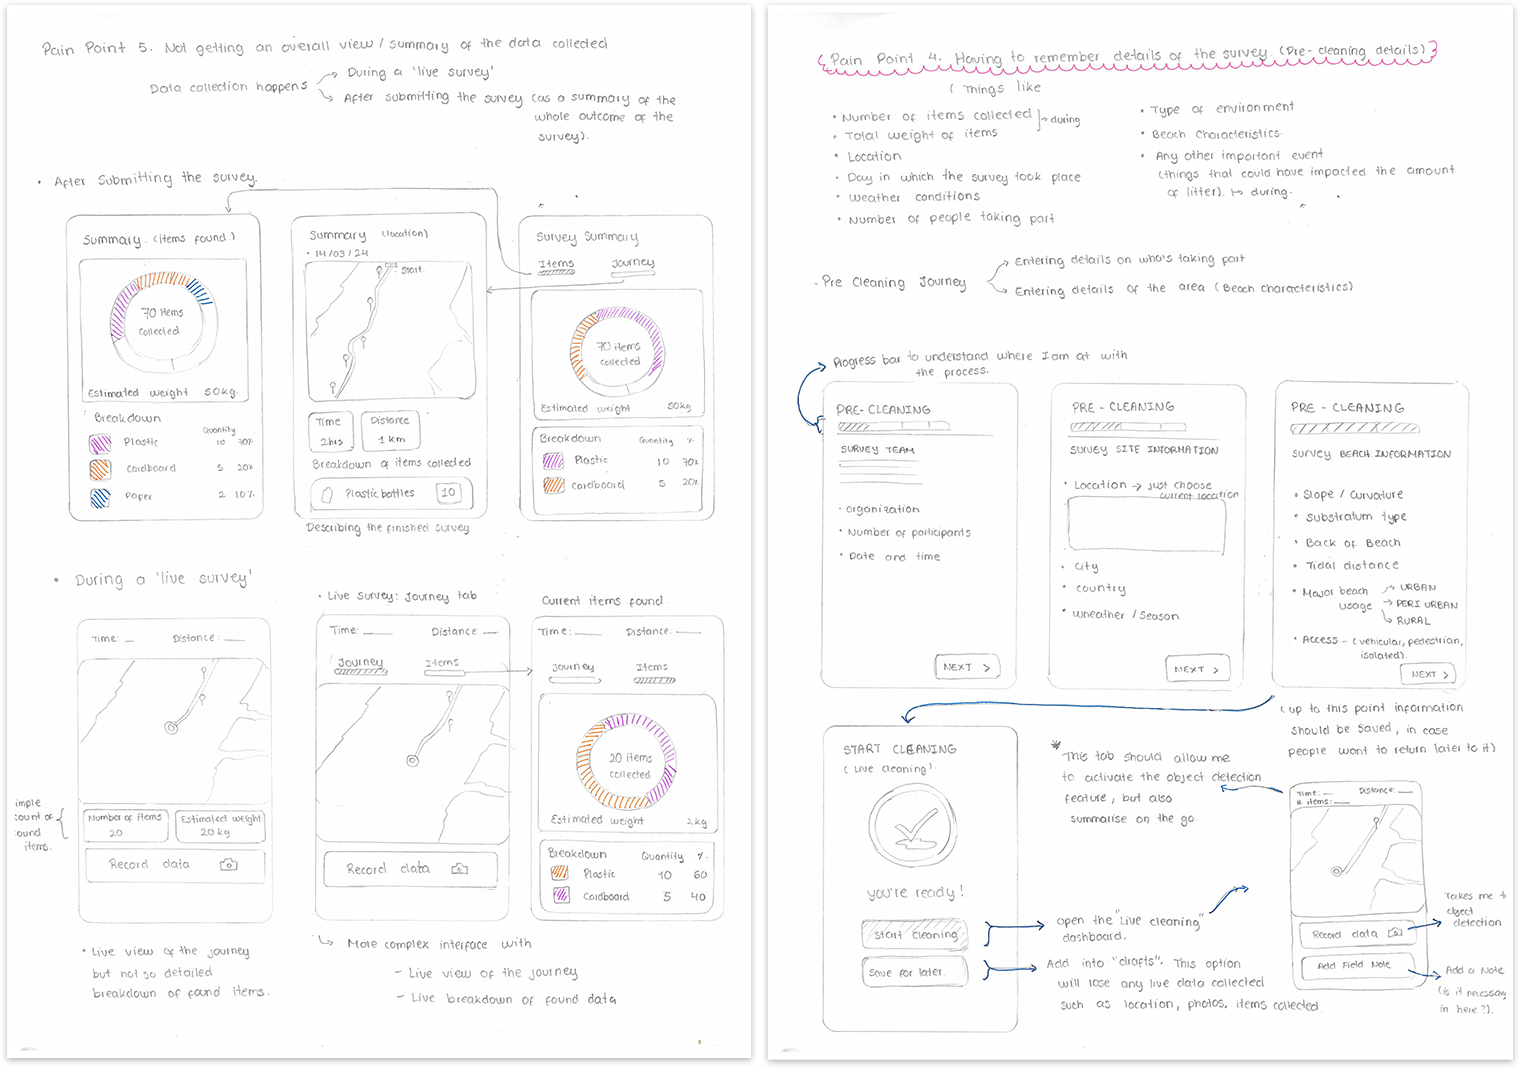 Pain Point 5. Not getting an overall view / summary of the data collected
Data collection happens
During a 'live survey'
After submitting the survey (as a summary of the
whole outcome of the
survey).
• After submitting the survey.
Summary. (items found)
70 items
collected
Estimated weight 50kg.
Breakdown
Quantity
Plastic 10 70%
Cardboard 5 20%
Paper 2 10%
Summary (location)
• 14/03/24
Start.
Time
2hrs
Distance
1 km
Breakdown of items collected
Plastic bottles 10
Describing the finished survey
Survey Summary
Items Journey
70 items
collected
Estimated weight 50kg
Breakdown Quantity %
Plastic 10 70%
Cardboard 5 20%
• During a 'live survey'
Time: Distance:
Number of items
20
Estimated weight
20 kg
Record data
imple
count of
ound
items.
• Live view of the journey
but not so detailed
breakdown of found items.
• Live survey: Journey tab
Time: Distance:
Journey Items
Record data
More complex interface with
- Live view of the journey
- Live breakdown of found data
Current items found.
Time: Distance:
Journey Items
20 items
collected
Estimated weight 2kg
Breakdown Quantity %
Plastic 10 60
Cardboard 5 40
Pain Point 4. Having to remember details of the survey. (Pre-cleaning details)
( Things like
• Number of items collected
• Total weight of items
during
• Location
• Day in which the survey took place
• Weather conditions
• Number of people taking part
• Type of environment
• Beach characteristics.
• Any other important event
(things that could have impacted the amount
of litter). during.
- Pre Cleaning Journey
Entering details on who's taking part
Entering details of the area (Beach characteristics)
Progress bar to understand where I am at with
the process.
PRE-CLEANING
SURVEY TEAM
• organization
• Number of participants
• Date and time
NEXT >
PRE-CLEANING
SURVEY SITE INFORMATION
• Location → just choose
current location
• city
• country
• wheather / season
NEXT >
PRE-CLEANING
SURVEY BEACH INFORMATION
• Slope / curvature
• Substratum type
• Back of Beach
• Tidal distance
• Major beach
usage
URBAN
PERI URBAN
RURAL
• Access - (vehicular, pedestrian,
isolated).
NEXT >
(up to this point information
should be saved, in case
people want to return later to it)
START CLEANING
(Live cleaning).
you're ready!
start cleaning
save for later.
* This tab should allow me
to activate the object detection
feature, but also
summarise on the go.
open the "Live cleaning"
dashboard.
Add into "drafts". This option
will lose any live data collected
such as location, photos, items collected.
Time: Distance:
# items:
Record data
Add Field Note
Takes me t
object
detection
Add a Note
(is it necessary
in here?).